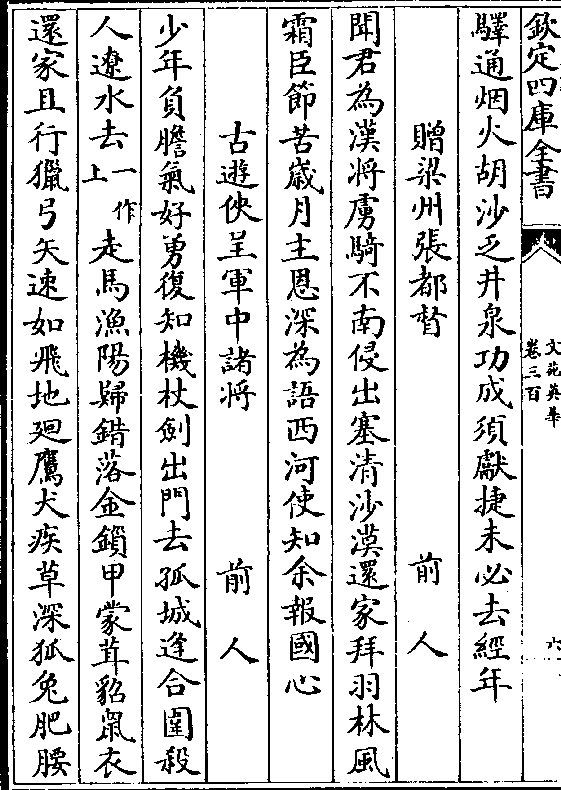 欽定四庫全書
文苑英華
卷三百
六
驛通烟火胡沙乏井泉功成須獻捷未必去經年
贈梁州張都督 前人
聞君為漢將虜騎不南侵出塞清沙漠還家拜羽林風
霜臣節苦嵗月主恩深為語西河使知余報國心
古遊俠呈軍中諸將 前人
少年負膽氣好勇復知機杖劍出門去孤城逢合圍殺
人遼水去一作上走馬漁陽歸錯落金鎖甲蒙茸貂鼠衣
還家且行獵弓矢速如飛地廻鷹犬疾草深狐兔肥腰